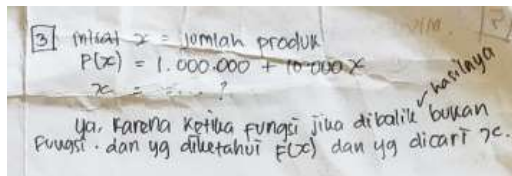 3 misal x = jumlah produk
P(x) = 1.000.000 + 10.000x
x = .... ?
hasilnya
ya, karena ketika fungsi jika dibalik bukan
Fungsi. dan yg diketahui F(x) dan yg dicari x.